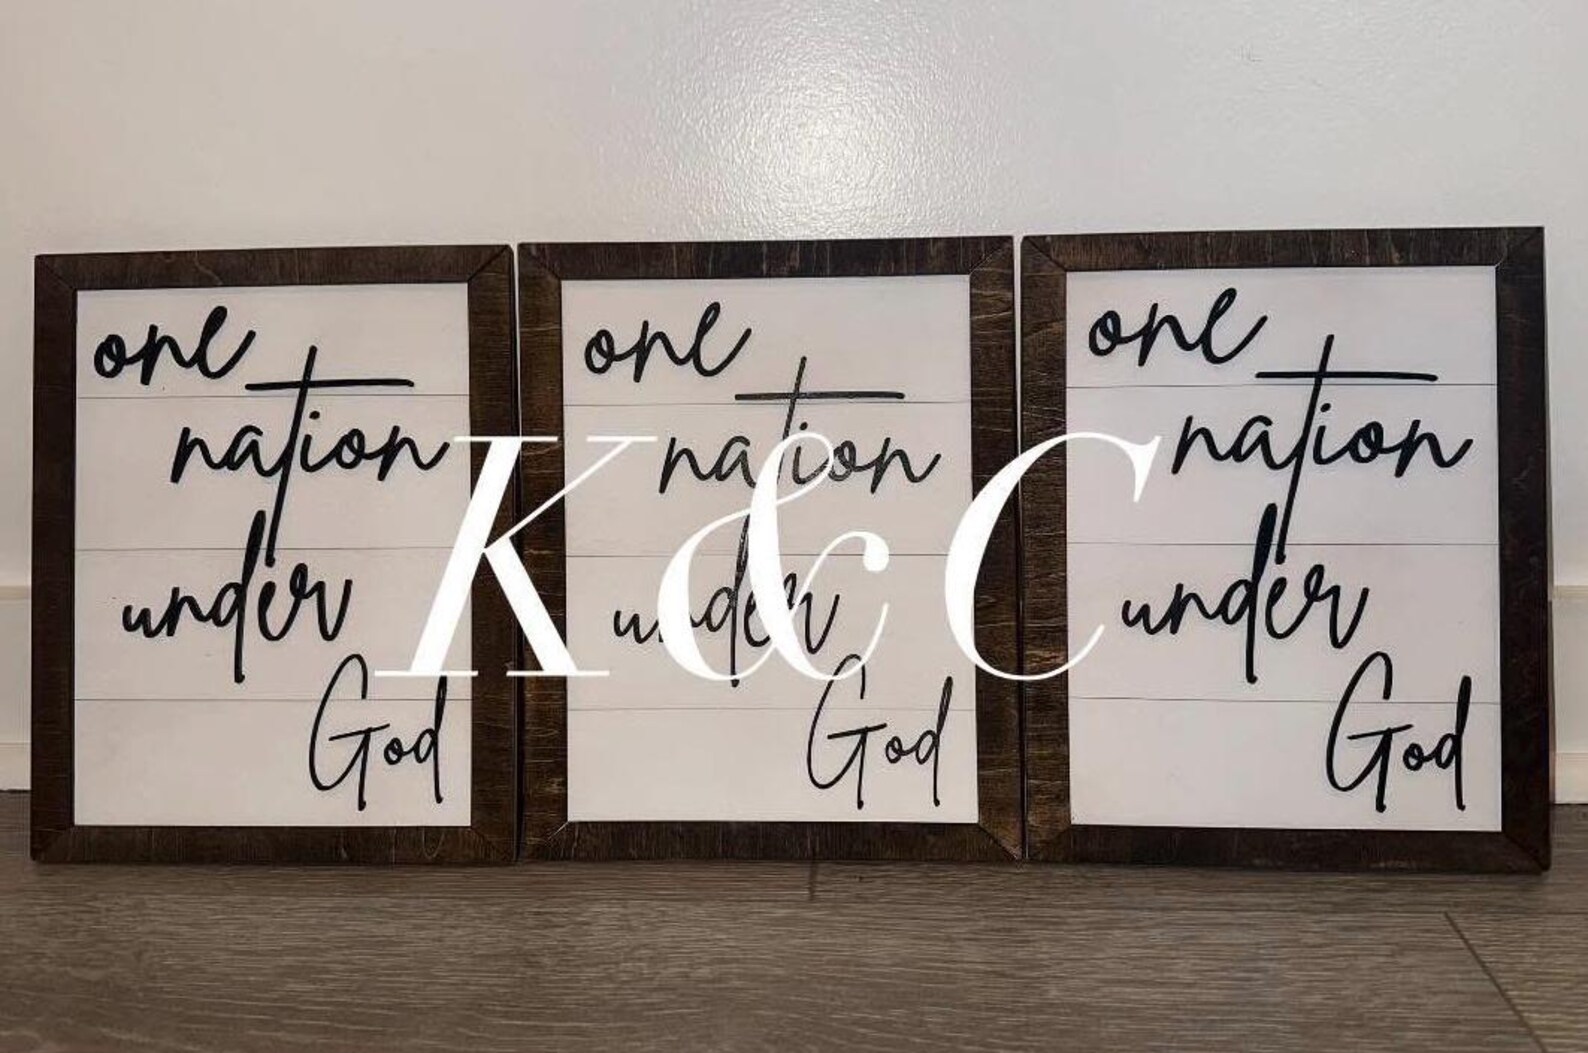 one
nation
under
God
one
nation
under
God
one
nation
under
God
K & C